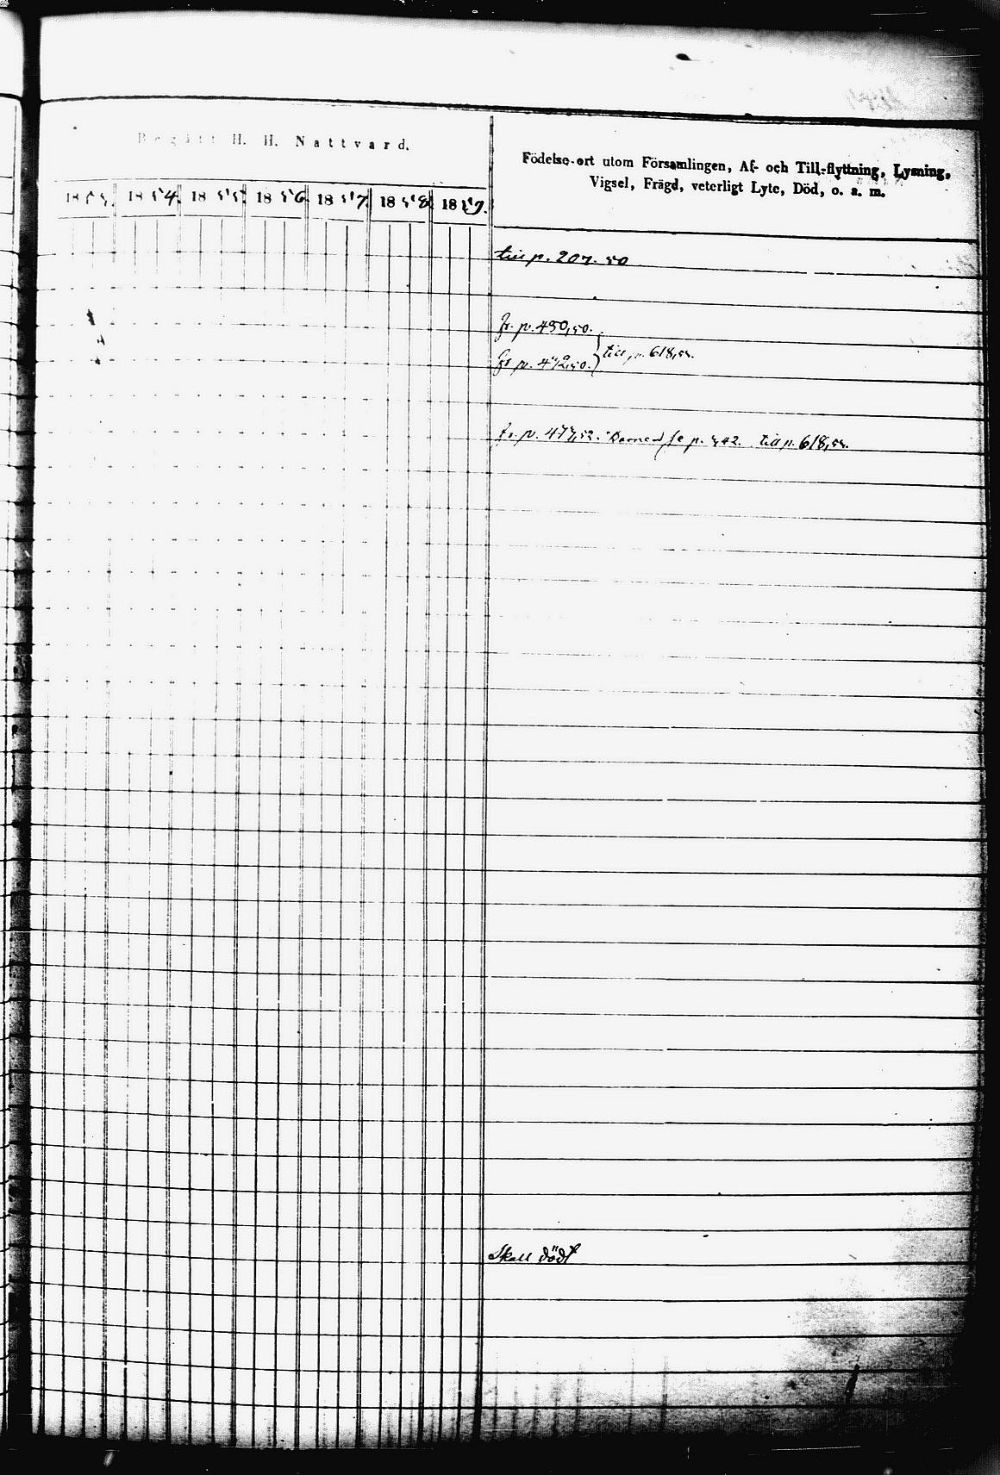 Begått H. H. Nattvard.
Födelse-ort utom Församlingen, Af- och Till-flyttning, Lysning,
Vigsel, Frägd, veterligt Lyte, Död, o. a. m.
1853. 1854. 1855. 1856. 1857. 1858. 1859.
till p. 207. 50
fr. p. 450,50.
fr p. 472,50. } till p. 618,55.
fr. p. 477,52. se p. 542. till p. 618,55.
Skall dödt